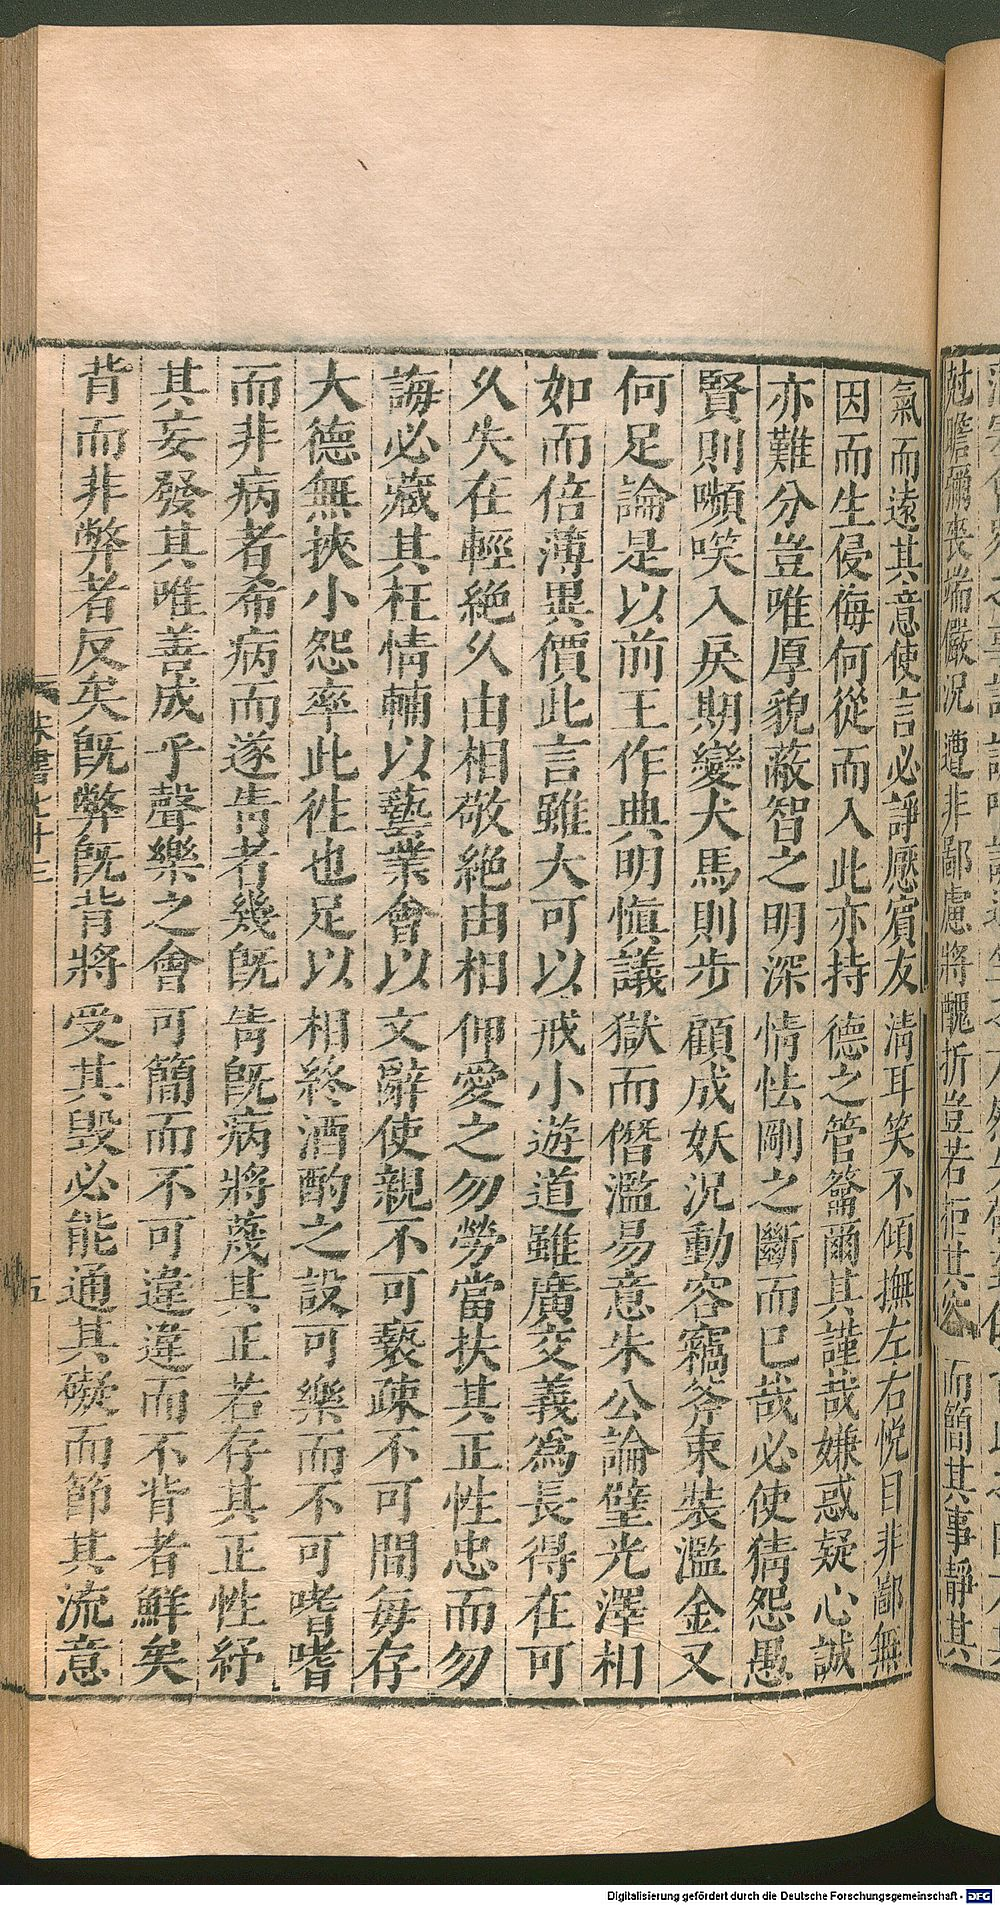 尅瞻彌喪端儼況遭非鄙慮將醜折豈若拒其容而簡其事靜其
氣而遠其意使言必諍懕賓友清耳笑不傾撫左右悅目非鄙無
因而生侵侮何從而入此亦持德之管籥爾其謹哉嫌惑疑心誠
亦難分豈唯厚貌蔽智之明深情怯剛之斷而已哉必使猜怨愚
賢則嚬唉入戾期變犬馬則步顧成妖況動容竊斧束裝濫金又
何足論是以前王作典明慎議獄而僭濫易意朱公論璧光澤相
如而倍薄異價此言雖大可以戒小遊道雖廣交義爲長得在可
久失在輕絕久由相敬絕由相狎愛之勿勞當扶其正性忠而勿
誨必藏其枉情輔以藝業會以文辭使親不可褻疎不可間每存
大德無挾小怨率此徃也足以相終酒酌之設可樂而不可嗜嗜
而非病者希病而遂眚者幾旣眚旣病將蔑其正若存其正性紓
其妄發其唯善戒乎聲樂之會可簡而不可違違而不背者鮮矣
背而非弊者反矣旣弊旣背將受其毀必能通其礙而節其流意
五
Digitalisierung gefördert durch die Deutsche Forschungsgemeinschaft - DFG